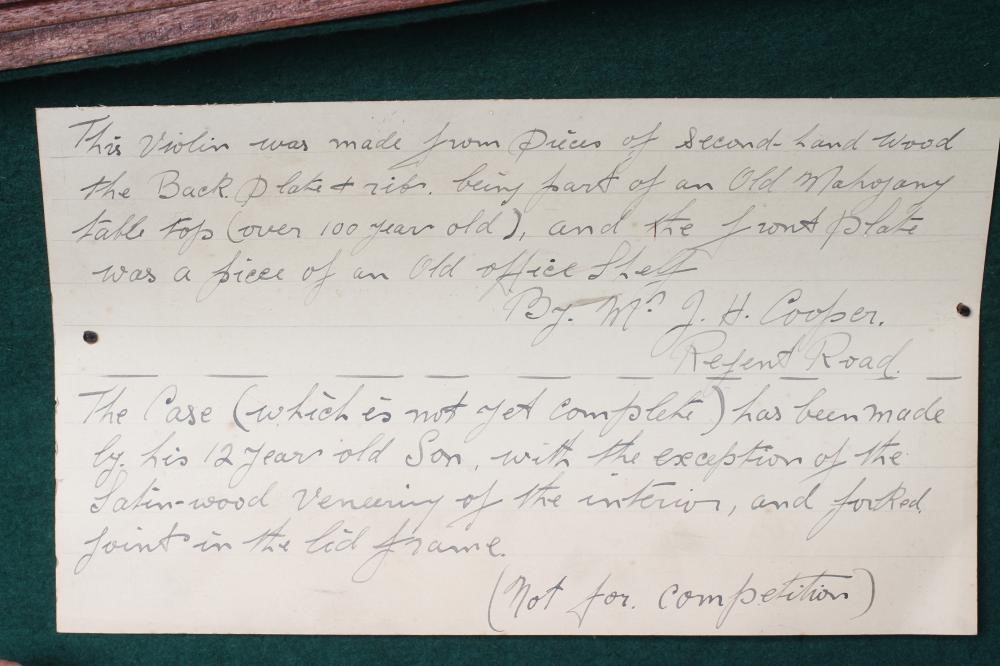 This Violin was made from pieces of second-hand wood
the Back plate & ribs. being part of an Old Mahogany
table top (over 100 year old), and the front plate
was a piece of an Old office Shelf
By. Mr. J. H. Cooper.
Regent Road.
The Case (which is not yet complete) has been made
by. his 12 year old Son, with the exception of the
Satin-wood Veneering of the interior, and forked
joint in the lid frame.
(Not for. competition)